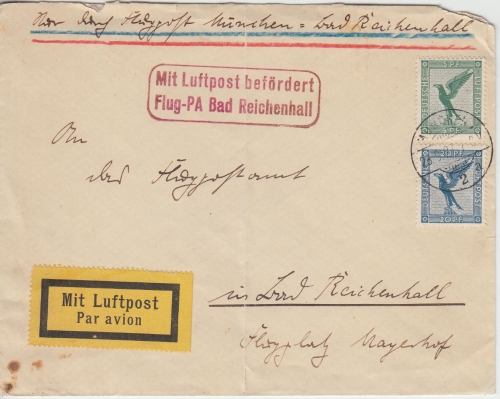 Nur durch Flugpost München = Bad Reichenhall
Mit Luftpost befördert
Flug-PA Bad Reichenhall
5 PF
DEUTSCHE
LUFTPOST
5 PF
An
das Flugpostamt
20 PF
20 PF
2
Mit Luftpost
Par avion
in Bad Reichenhall
Flugplatz Mayerhof